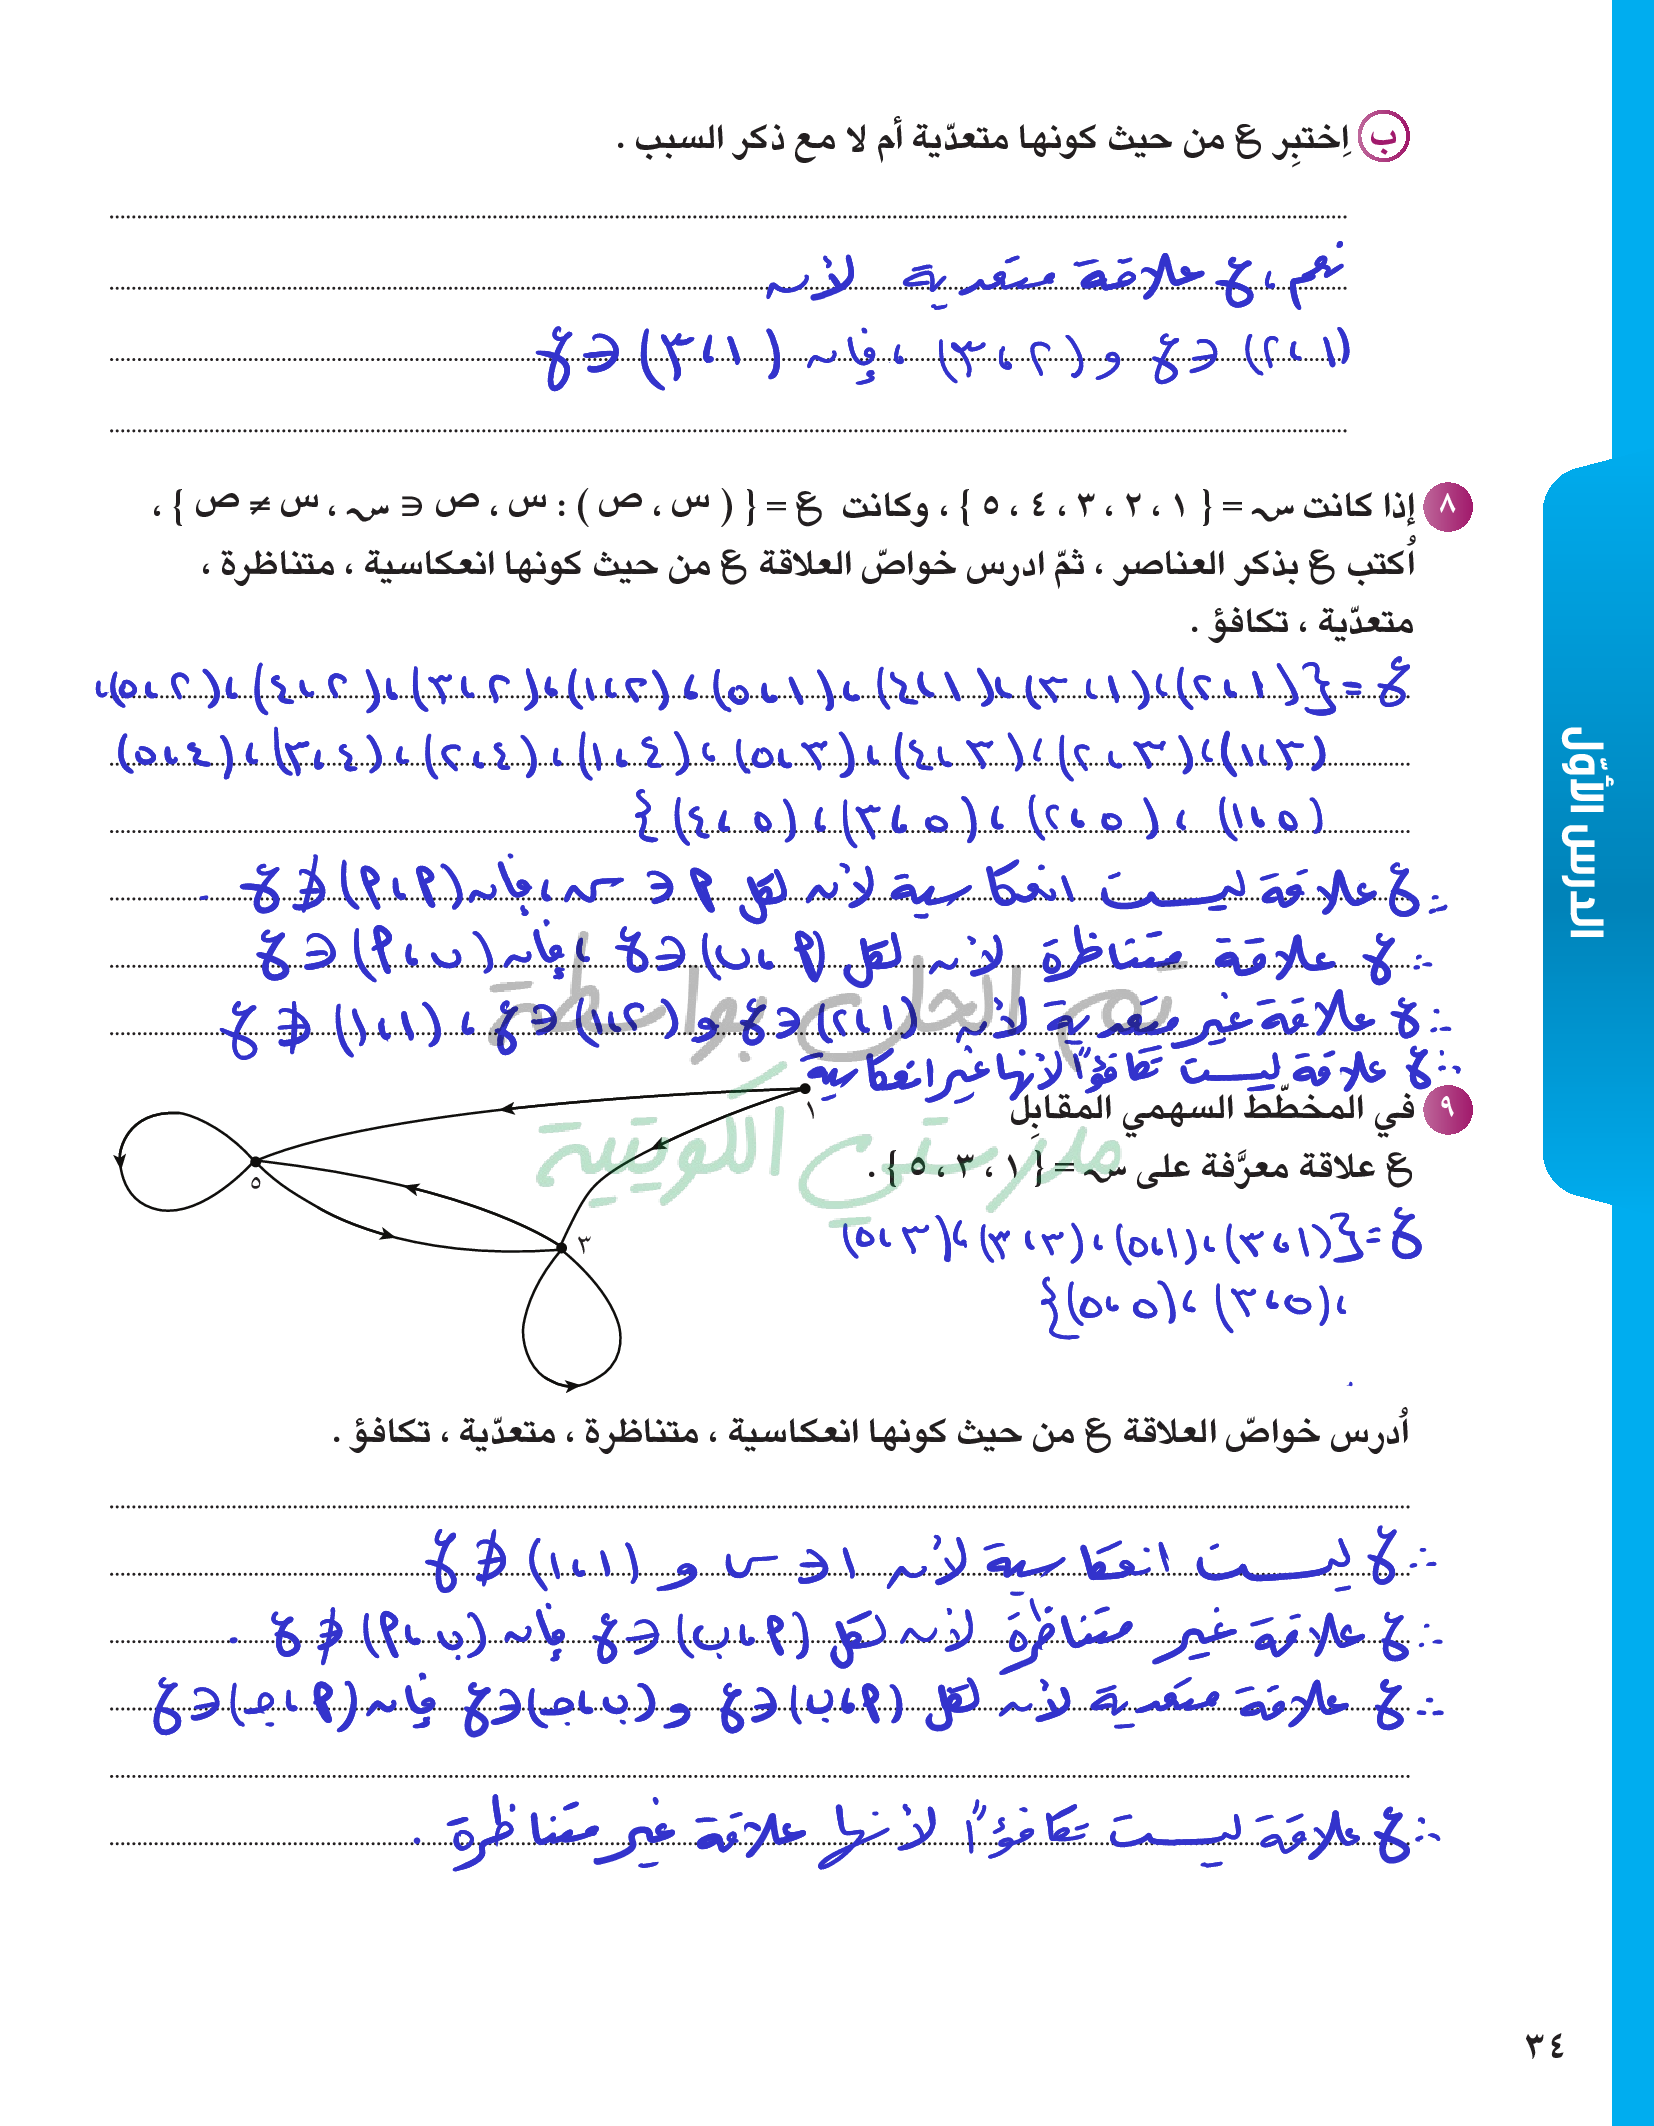 ب اِختبِر ع من حيث كونها متعدّية أم لا مع ذكر السبب .
نعم ، ع علاقة متعدية لأنه
(١ ، ٢) ∈ ع و (٢ ، ٣) ، فإنه (١ ، ٣) ∈ ع
٨ إذا كانت س = { ١ ، ٢ ، ٣ ، ٤ ، ٥ } ، وكانت ع = { ( س ، ص ) : س ، ص ∈ س ، س ≠ ص } ،
اُكتب ع بذكر العناصر ، ثمّ ادرس خواصّ العلاقة ع من حيث كونها انعكاسية ، متناظرة ،
متعدّية ، تكافؤ .
ع = { (١ ، ٢) ، (١ ، ٣) ، (١ ، ٤) ، (١ ، ٥) ، (٢ ، ١) ، (٢ ، ٣) ، (٢ ، ٤) ، (٢ ، ٥) ،
(٣ ، ١) ، (٣ ، ٢) ، (٣ ، ٤) ، (٣ ، ٥) ، (٤ ، ١) ، (٤ ، ٢) ، (٤ ، ٣) ، (٤ ، ٥)
(٥ ، ١) ، (٥ ، ٢) ، (٥ ، ٣) ، (٥ ، ٤) }
∴ ع علاقة ليست انعكاسية لأنه لكل م ∈ س ، فإنه (م ، م) ∉ ع .
∴ ع علاقة متناظرة لأنه لكل (م ، ب) ∈ ع ، فإنه (ب ، م) ∈ ع
∴ ع علاقة غير متعدية لأنه (١ ، ٢) ∈ ع و (٢ ، ١) ∈ ع ، (١ ، ١) ∉ ع
تم الحل بواسطة
∴ ع علاقة ليست تكافؤاً لأنها غير انعكاسية
مدرستي الكويتية
٩ في المخطّط السهمي المقابِل
ع علاقة معرَّفة على س = { ١ ، ٣ ، ٥ } .
١
٥
٣
ع = { (١ ، ٣) ، (١ ، ٥) ، (٣ ، ٣) ، (٣ ، ٥)
، (٥ ، ٣) ، (٥ ، ٥) }
اُدرس خواصّ العلاقة ع من حيث كونها انعكاسية ، متناظرة ، متعدّية ، تكافؤ .
∴ ع ليست انعكاسية لأنه ١ ∈ س و (١ ، ١) ∉ ع
∴ ع علاقة غير متناظرة لأنه لكل (م ، ب) ∈ ع فإنه (ب ، م) ∉ ع .
∴ ع علاقة متعدية لأنه لكل (م ، ب) ∈ ع و (ب ، ج) ∈ ع فإنه (م ، ج) ∈ ع
∴ ع علاقة ليست تكافؤاً لأنها علاقة غير متناظرة .
الدرس الأوّل
٣٤